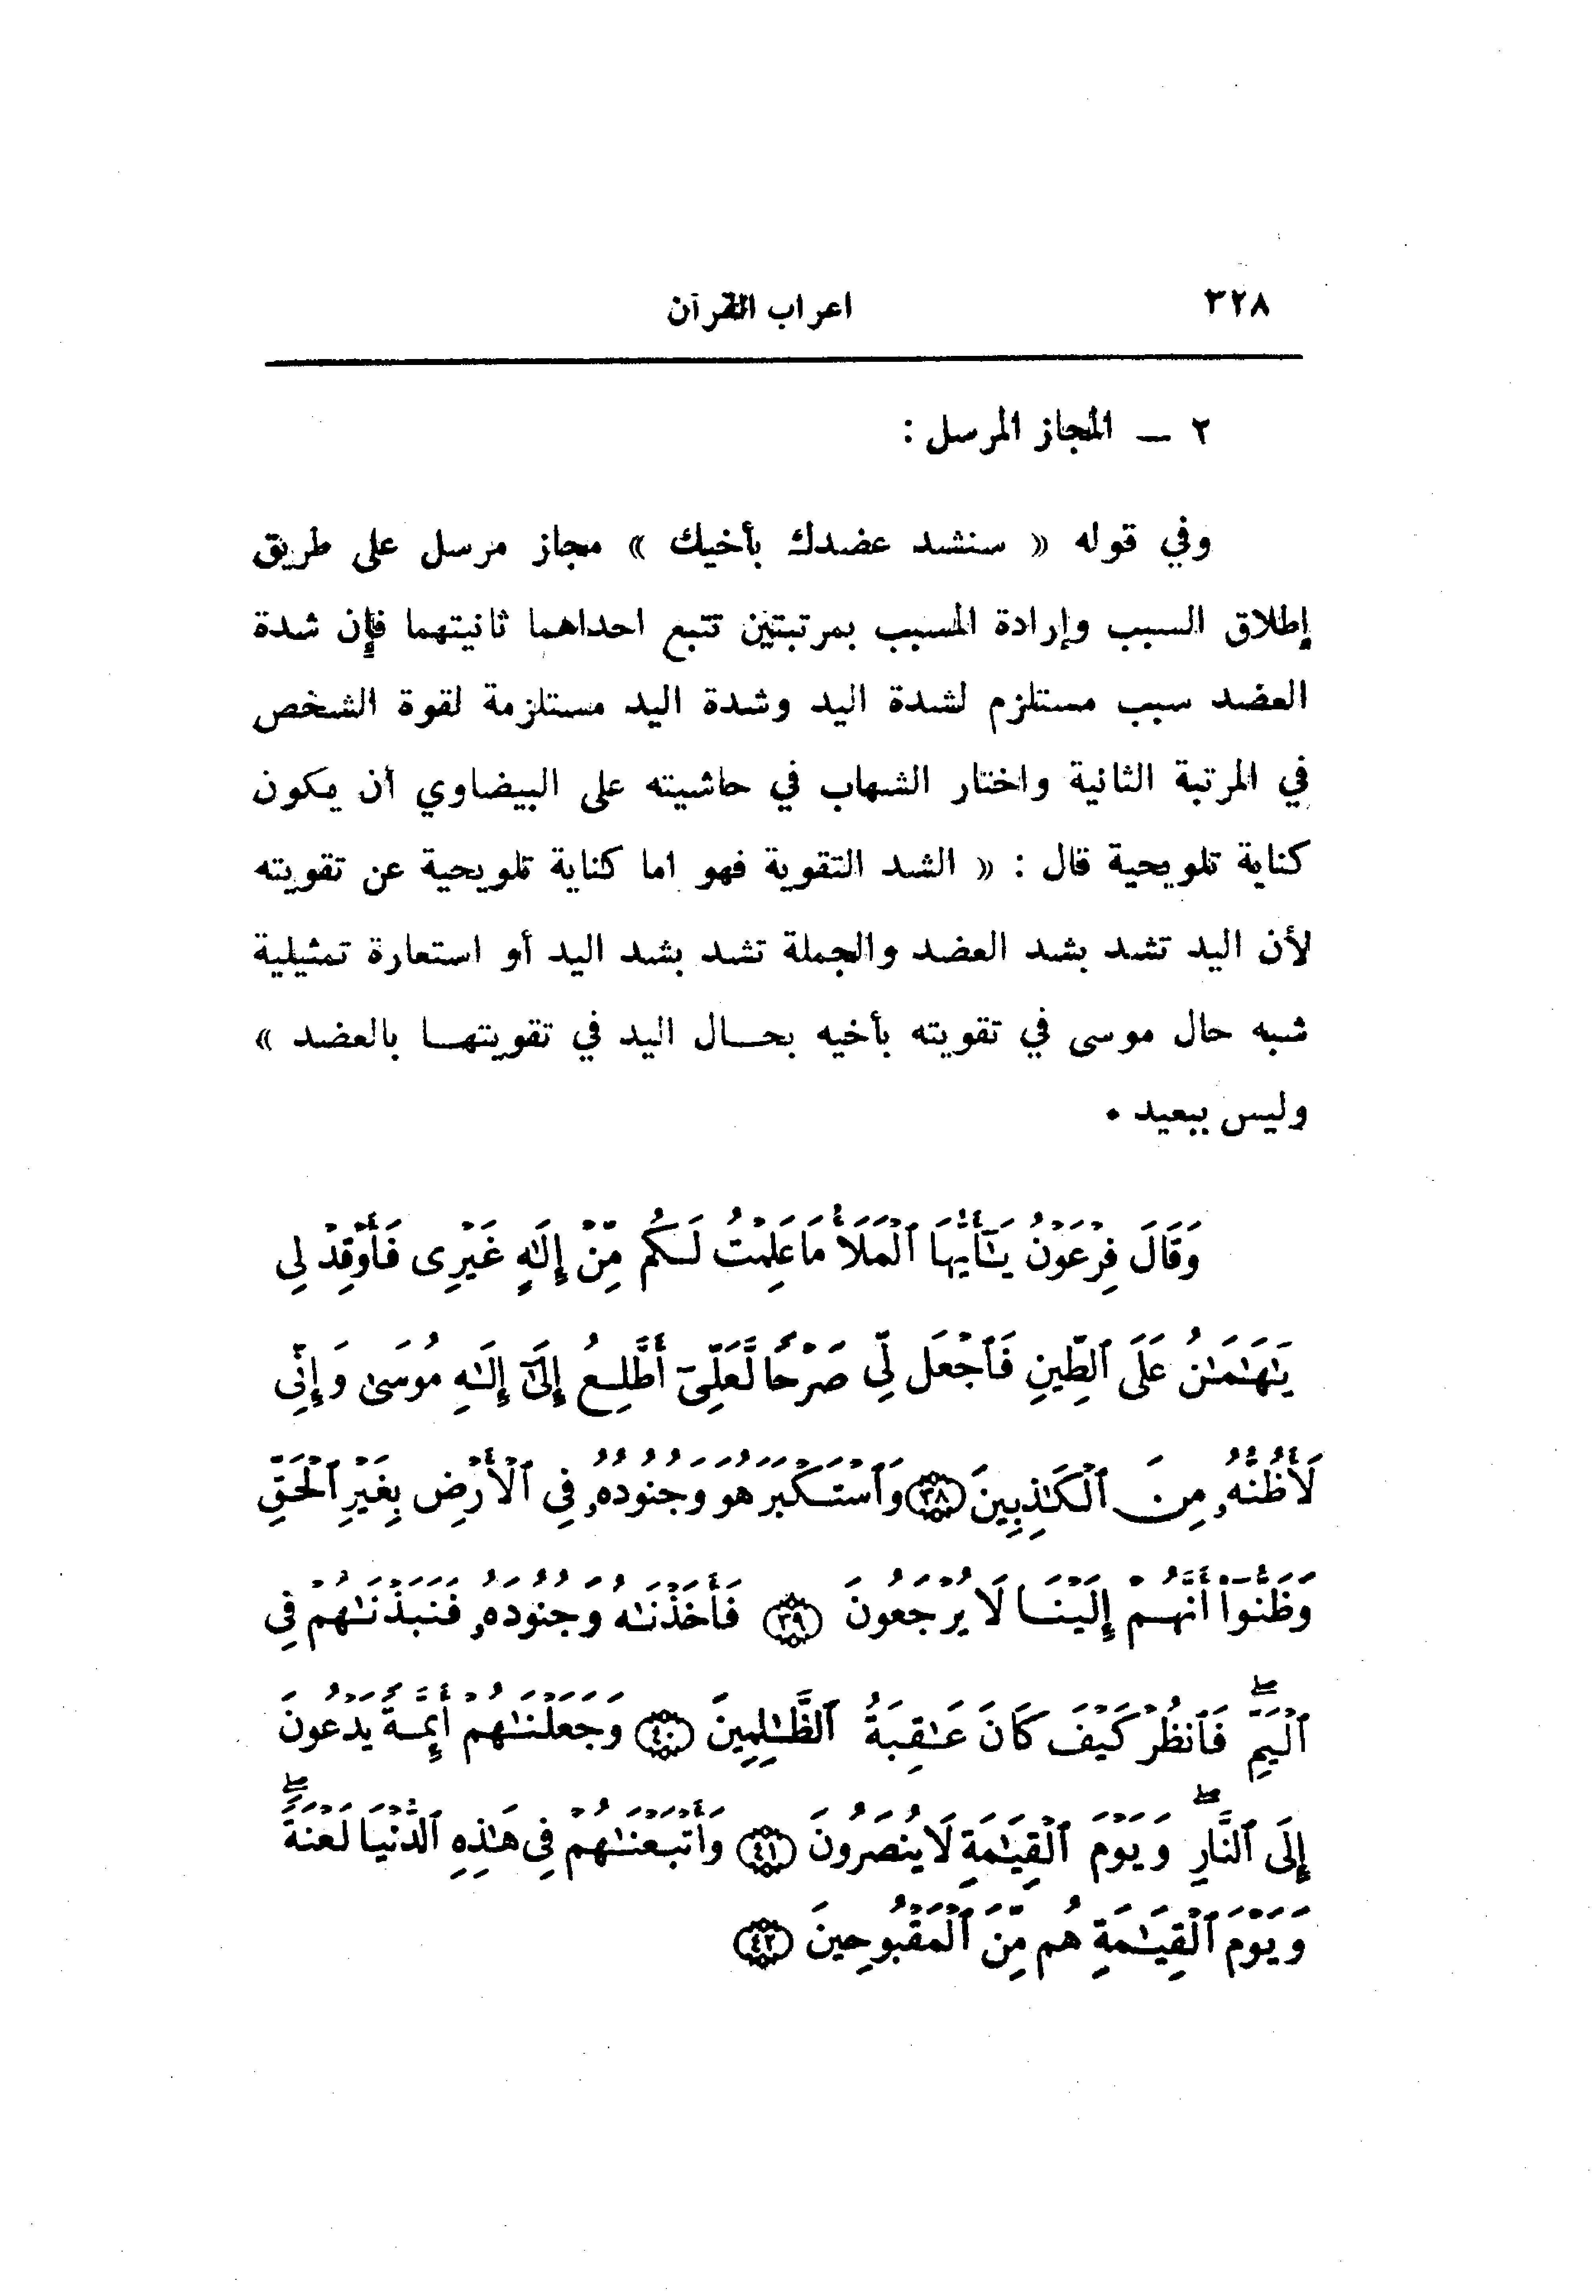 ٣٢٨
اعراب القرآن
٢ — المجاز المرسل :
وفي قوله « سنشد عضدك بأخيك » مجاز مرسل على طريق
إطلاق السبب وإرادة المسبب بمرتبتين تتبع احداهما ثانيتهما فإن شدة
العضد سبب مستلزم لشدة اليد وشدة اليد مستلزمة لقوة الشخص
في المرتبة الثانية واختار الشهاب في حاشيته على البيضاوي أن يكون
كناية تلويحية قال : « الشد التقوية فهو اما كناية تلويحية عن تقويته
لأن اليد تشد بشد العضد والجملة تشد بشد اليد أو استعارة تمثيلية
شبه حال موسى في تقويته بأخيه بحـــال اليد في تقويتهـــا بالعضد »
وليس ببعيد .
وَقَالَ فِرْعَوْنُ يَٰٓأَيُّهَا ٱلْمَلَأُ مَا عَلِمْتُ لَكُم مِّنْ إِلَٰهٍ غَيْرِى فَأَوْقِدْ لِى
يَٰهَٰمَٰنُ عَلَى ٱلطِّينِ فَٱجْعَل لِّى صَرْحًا لَّعَلِّىٓ أَطَّلِعُ إِلَىٰٓ إِلَٰهِ مُوسَىٰ وَإِنِّى
لَأَظُنُّهُۥ مِنَ ٱلْكَٰذِبِينَ ﴿٣٨﴾ وَٱسْتَكْبَرَ هُوَ وَجُنُودُهُۥ فِى ٱلْأَرْضِ بِغَيْرِ ٱلْحَقِّ
وَظَنُّوٓا۟ أَنَّهُمْ إِلَيْنَا لَا يُرْجَعُونَ ﴿٣٩﴾ فَأَخَذْنَٰهُ وَجُنُودَهُۥ فَنَبَذْنَٰهُمْ فِى
ٱلْيَمِّ ۖ فَٱنظُرْ كَيْفَ كَانَ عَٰقِبَةُ ٱلظَّٰلِمِينَ ﴿٤٠﴾ وَجَعَلْنَٰهُمْ أَئِمَّةً يَدْعُونَ
إِلَى ٱلنَّارِ ۖ وَيَوْمَ ٱلْقِيَٰمَةِ لَا يُنصَرُونَ ﴿٤١﴾ وَأَتْبَعْنَٰهُمْ فِى هَٰذِهِ ٱلدُّنْيَا لَعْنَةً ۖ
وَيَوْمَ ٱلْقِيَٰمَةِ هُم مِّنَ ٱلْمَقْبُوحِينَ ﴿٤٢﴾